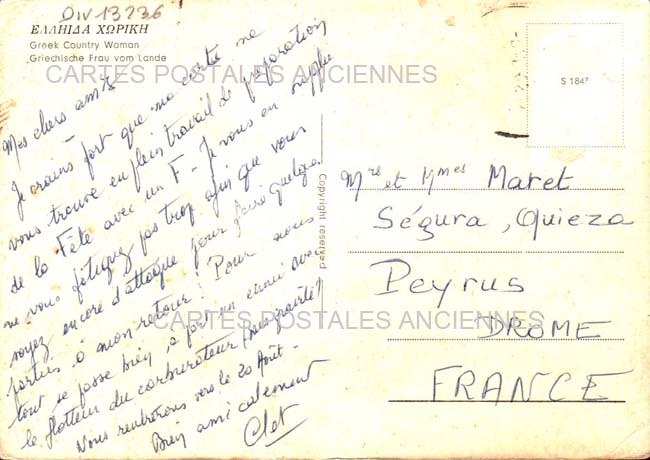 Div 13236
ΕΛΛΗΙΔΑ ΧΩΡΙΚΗ
Greek Country Woman
Griechische Frau vom Lande
CARTES POSTALES ANCIENNES
S 1847
Mes chers amis
Je crains fort que ma carte ne
vous trouve en plein travail de préparation
de la Fête avec un F - Je vous en supplie
ne vous fatiguez pas trop afin que vous
soyez encore d'attaque pour faire quelques
parties à mon retour! Pour nous
tout se passe bien, à part un ennui avec
le flotteur du carburateur
Nous rentrerons vers le 20 Août -
Bien amicalement
Clet
Copyright reserved
Mre et Mmes Maret
Ségura, Quieza
Peyrus
DROME
FRANCE
CARTES POSTALES ANCIENNES